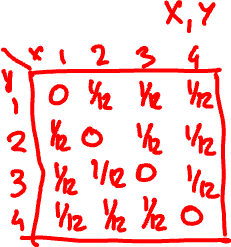 X, Y
x 1 2 3 4
y
1 0 1/12 1/12 1/12
2 1/12 0 1/12 1/12
3 1/12 1/12 0 1/12
4 1/12 1/12 1/12 0